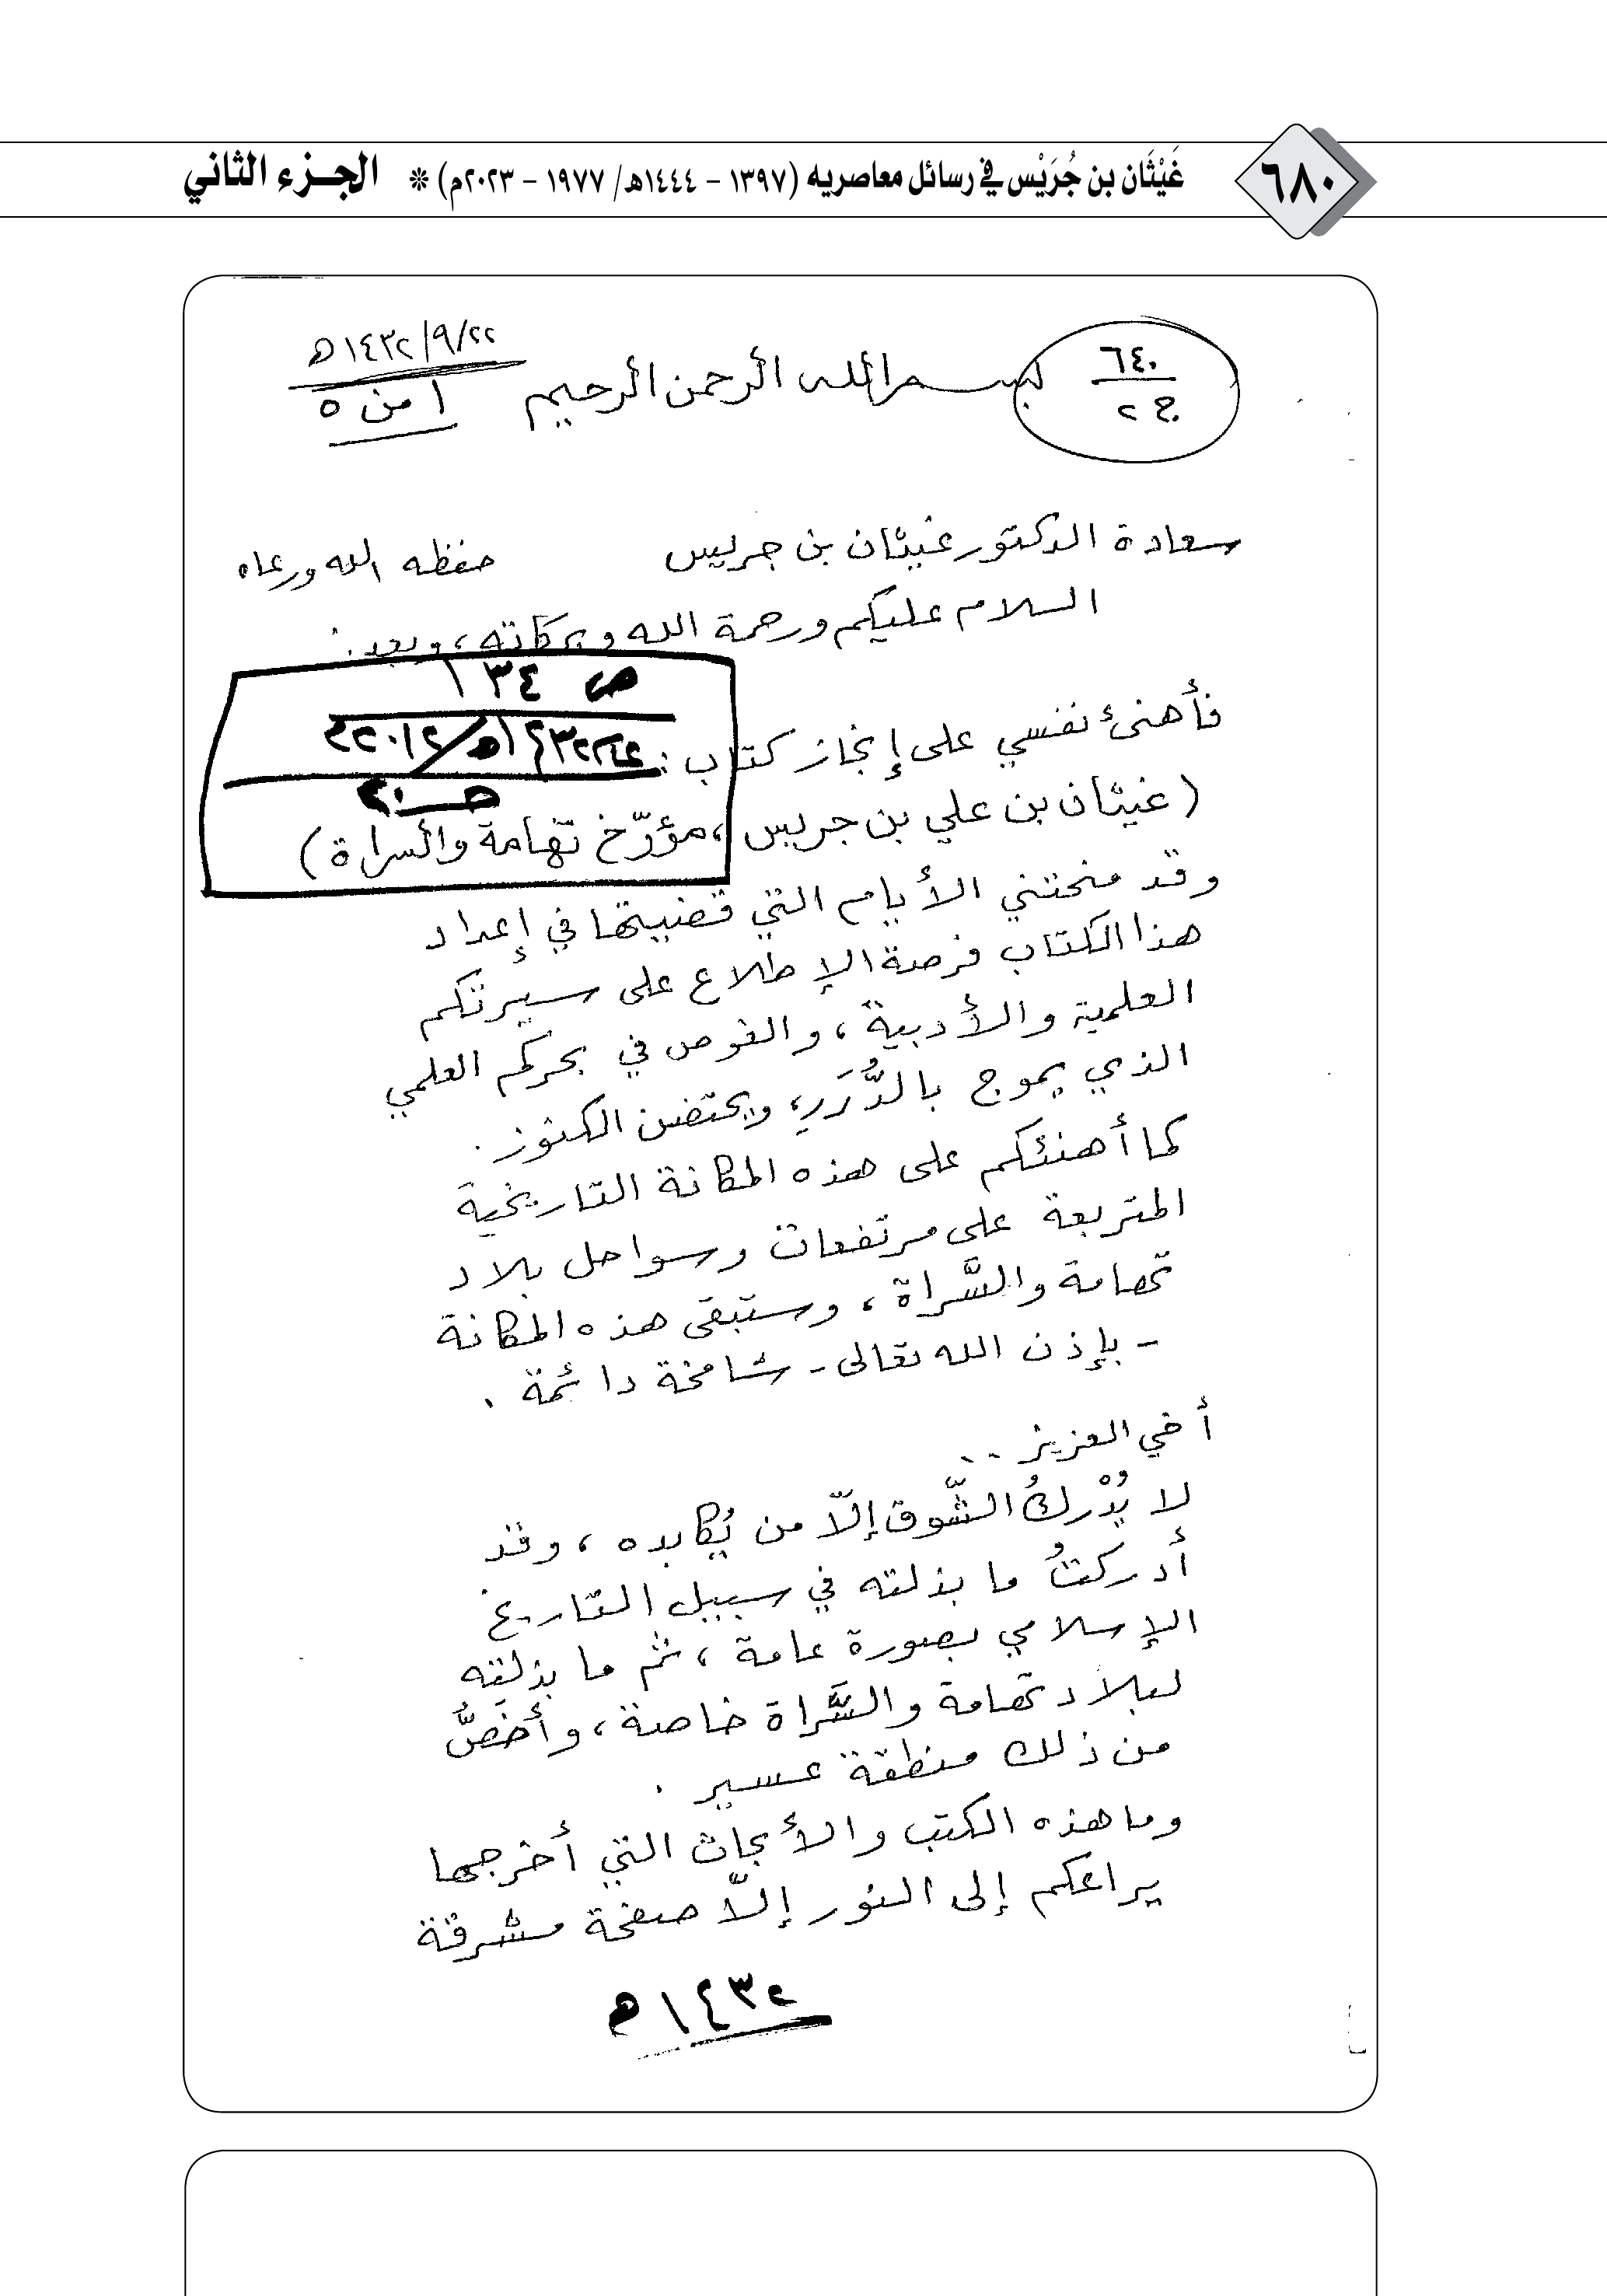 ٦٨٠
غَيْثَان بن جُرَيْس في رسائل معاصريه (١٣٩٧ – ١٤٤٤هـ/ ١٩٧٧ – ٢٠٢٣م) * الجـزء الثاني
٦٤٠
ج ٢
٢٢/٩/١٤٣٢هـ
بسم الله الرحمن الرحيم
١ من ٥
سعادة الدكتور غيثان بن جريس حفظه الله ورعاه
السلام عليكم ورحمة الله وبركاته، وبعد:
ص ١٣٤
١٤٣٢هـ/٢٠١٢م
حـ٢٠
فأهنئ نفسي على إنجاز كتاب:
(غيثان بن علي بن جريس، مؤرّخ تهامة والسراة)
وقد منحتني الأيام التي قضيتها في إعداد
هذا الكتاب فرصة الإطلاع على سيرتكم
العلمية والأدبية، والغوص في بحركم العلمي
الذي يموج بالدُّرَر، ويحتضن الكنوز.
كما أهنئكم على هذه المكانة التاريخية
المتربعة على مرتفعات وسواحل بلاد
تهامة والسَّراة، وستبقى هذه المكانة
- بإذن الله تعالى - شامخة دائمة.
أخي العزيز ..
لا يُدْركُ الشّوق إلّا من يُكابده، وقد
أدركتُ ما بذلته في سبيل التاريخ
الإسلامي بصورة عامة، ثم ما بذلته
لبلاد تهامة والسَّراة خاصة، وأخصُّ
من ذلك منطقة عسير.
وما هذه الكتب والأبحاث التي أخرجها
يراعكم إلى النور إلّا صفحة مشرقة
١٤٣٢هـ